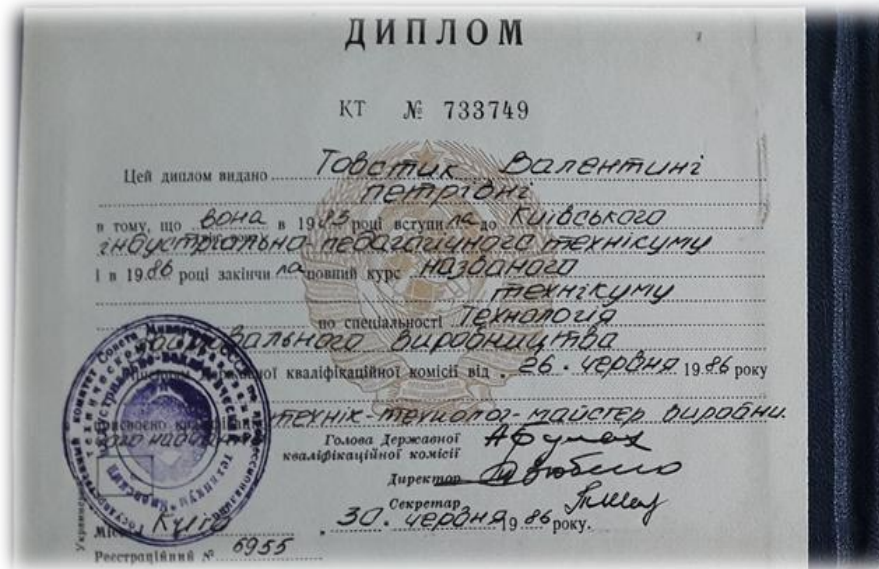 ДИПЛОМ
КТ № 733749
Цей диплом видано Товстик Валентині
петрівні
в тому, що вона в 1983 році вступила до Київського
індустріально педагогічного технікуму
і в 1986 році закінчила повний курс названого
технікуму
по спеціальності Технологія
виробництва
Державної кваліфікаційної комісії від 26 червня 1986 року
технік-технолог-майстер виробни
Голова Державної
кваліфікаційної комісії
Директор
Секретар
Київ 30 червня 1986 року.
Реєстраційний № 6955